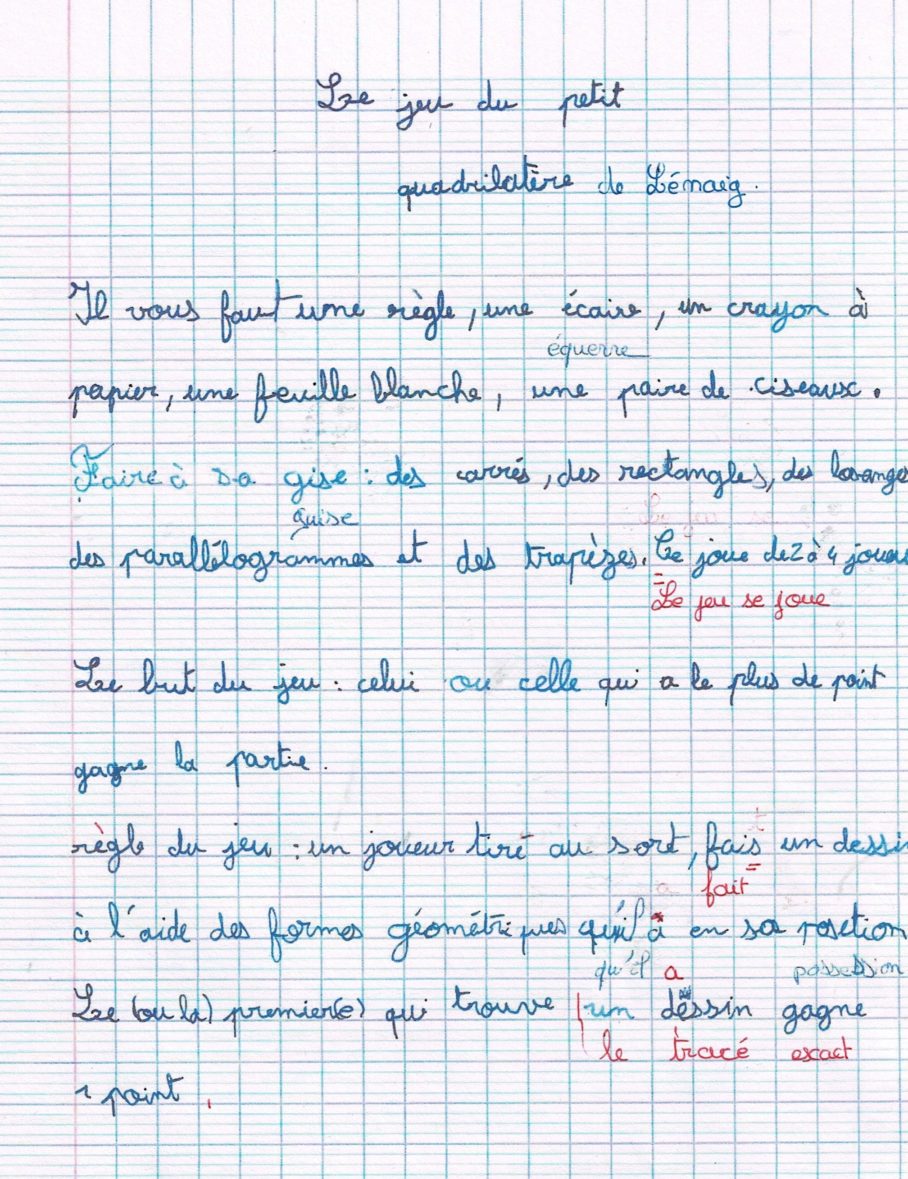 Le jeu du petit
quadrilatère de Lémaig.
Il vous faut une règle, une écaire, un crayon à
équerre
papier, une feuille blanche, une paire de ciseaux.
Faire à sa gise : des carrés, des rectangles, des losanges
guise
des parallélogrammes et des trapèzes. Ce joue de 2 à 4 joueurs
Le jeu se joue
Le but du jeu : celui ou celle qui a le plus de point
gagne la partie.
règle du jeu : un joueur tiré au sort, fais un dessin
fait
à l'aide des formes géométriques qu'il à en sa position
qu'il a possession
Le (ou la) premier(e) qui trouve un dessin gagne
le tracé exact
1 point.